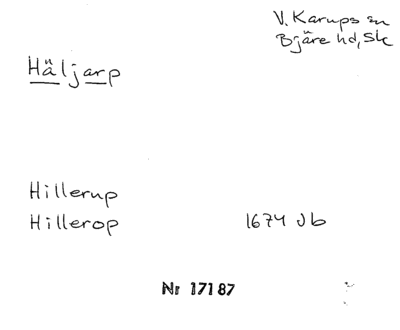 V. Karups sn
Bjäre hd, Sk
Häljarp
Hillerup
Hillerop 1674 Jb
Nr 17187